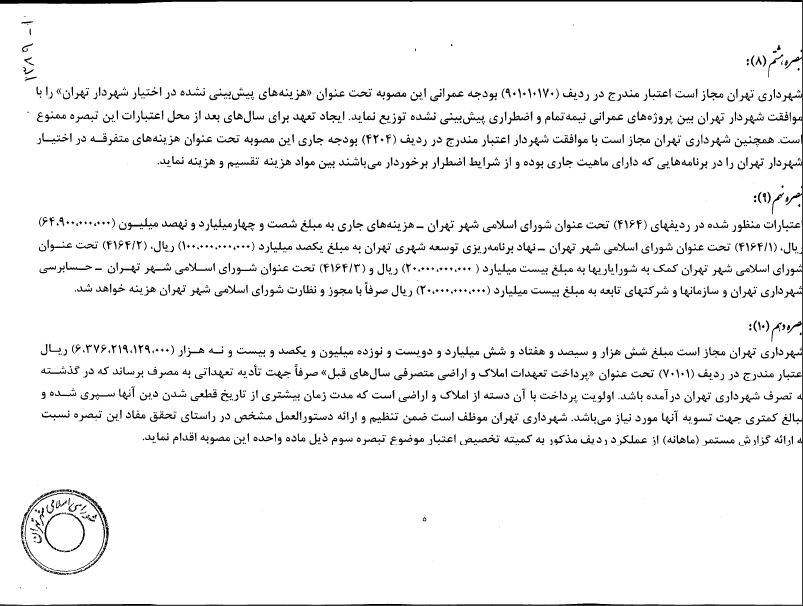 ۱۳۸۹-۱
تبصره هشتم (۸):
شهرداری تهران مجاز است اعتبار مندرج در ردیف (۹۰۱۰۱۰۱۷۰) بودجه عمرانی این مصوبه تحت عنوان «هزینه‌های پیش‌بینی نشده در اختیار شهردار تهران» را با
موافقت شهردار تهران بین پروژه‌های عمرانی نیمه‌تمام و اضطراری پیش‌بینی نشده توزیع نماید. ایجاد تعهد برای سال‌های بعد از محل اعتبارات این تبصره ممنوع
است. همچنین شهرداری تهران مجاز است با موافقت شهردار اعتبار مندرج در ردیف (۴۲۰۴) بودجه جاری این مصوبه تحت عنوان هزینه‌های متفرقه در اختیار
شهردار تهران را در برنامه‌هایی که دارای ماهیت جاری بوده و از شرایط اضطرار برخوردار می‌باشند بین مواد هزینه تقسیم و هزینه نماید.
تبصره نهم (۹):
اعتبارات منظور شده در ردیفهای (۴۱۶۴) تحت عنوان شورای اسلامی شهر تهران – هزینه‌های جاری به مبلغ شصت و چهارمیلیارد و نهصد میلیون (۶۴،۹۰۰،۰۰۰،۰۰۰)
ریال، (۴۱۶۴/۱) تحت عنوان شورای اسلامی شهر تهران – نهاد برنامه‌ریزی توسعه شهری تهران به مبلغ یکصد میلیارد (۱۰۰،۰۰۰،۰۰۰،۰۰۰) ریال، (۴۱۶۴/۲) تحت عنوان
شورای اسلامی شهر تهران کمک به شورایاریها به مبلغ بیست میلیارد (۲۰،۰۰۰،۰۰۰،۰۰۰) ریال و (۴۱۶۴/۳) تحت عنوان شورای اسلامی شهر تهران – حسابرسی
شهرداری تهران و سازمانها و شرکتهای تابعه به مبلغ بیست میلیارد (۲۰،۰۰۰،۰۰۰،۰۰۰) ریال صرفاً با مجوز و نظارت شورای اسلامی شهر تهران هزینه خواهد شد.
بصره دهم (۱۰):
شهرداری تهران مجاز است مبلغ شش هزار و سیصد و هفتاد و شش میلیارد و دویست و نوزده میلیون و یکصد و بیست و نه هزار (۶،۳۷۶،۲۱۹،۱۲۹،۰۰۰) ریال
عتبار مندرج در ردیف (۷۰۱۰۱) تحت عنوان «پرداخت تعهدات املاک و اراضی متصرفی سال‌های قبل» صرفاً جهت تأدیه تعهداتی به مصرف برساند که در گذشته
ه تصرف شهرداری تهران درآمده باشد. اولویت پرداخت با آن دسته از املاک و اراضی است که مدت زمان بیشتری از تاریخ قطعی شدن دین آنها سپری شده و
مبالغ کمتری جهت تسویه آنها مورد نیاز می‌باشد. شهرداری تهران موظف است ضمن تنظیم و ارائه دستورالعمل مشخص در راستای تحقق مفاد این تبصره نسبت
ه ارائه گزارش مستمر (ماهانه) از عملکرد ردیف مذکور به کمیته تخصیص اعتبار موضوع تبصره سوم ذیل ماده واحده این مصوبه اقدام نماید.
۵
شورای اسلامی شهر تهران